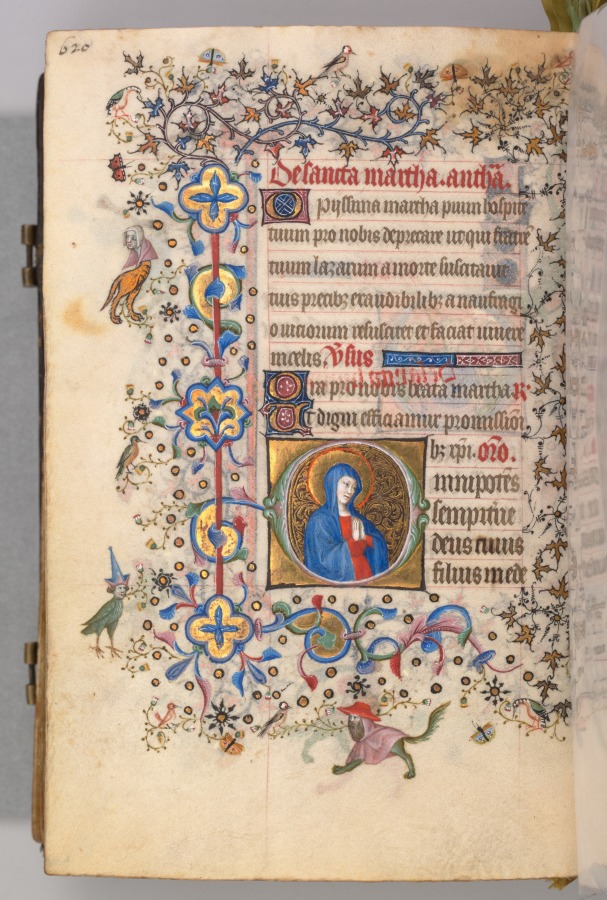 620
De sancta martha. antha.
O piissima martha pium hospit
tuum pro nobis deprecare ut qui fratrē
tuum lazarum a morte suscitauit
tuis precibz exaudibilibz a naufragi
o uiciorum resuscitet et faciat uiuere
in celis. Vsus
Ora pro nobis beata martha R.
Vt digni efficiamur promission
bz xpi. oro.
Omnipotēs
sempitne
deus cuius
filius in ede